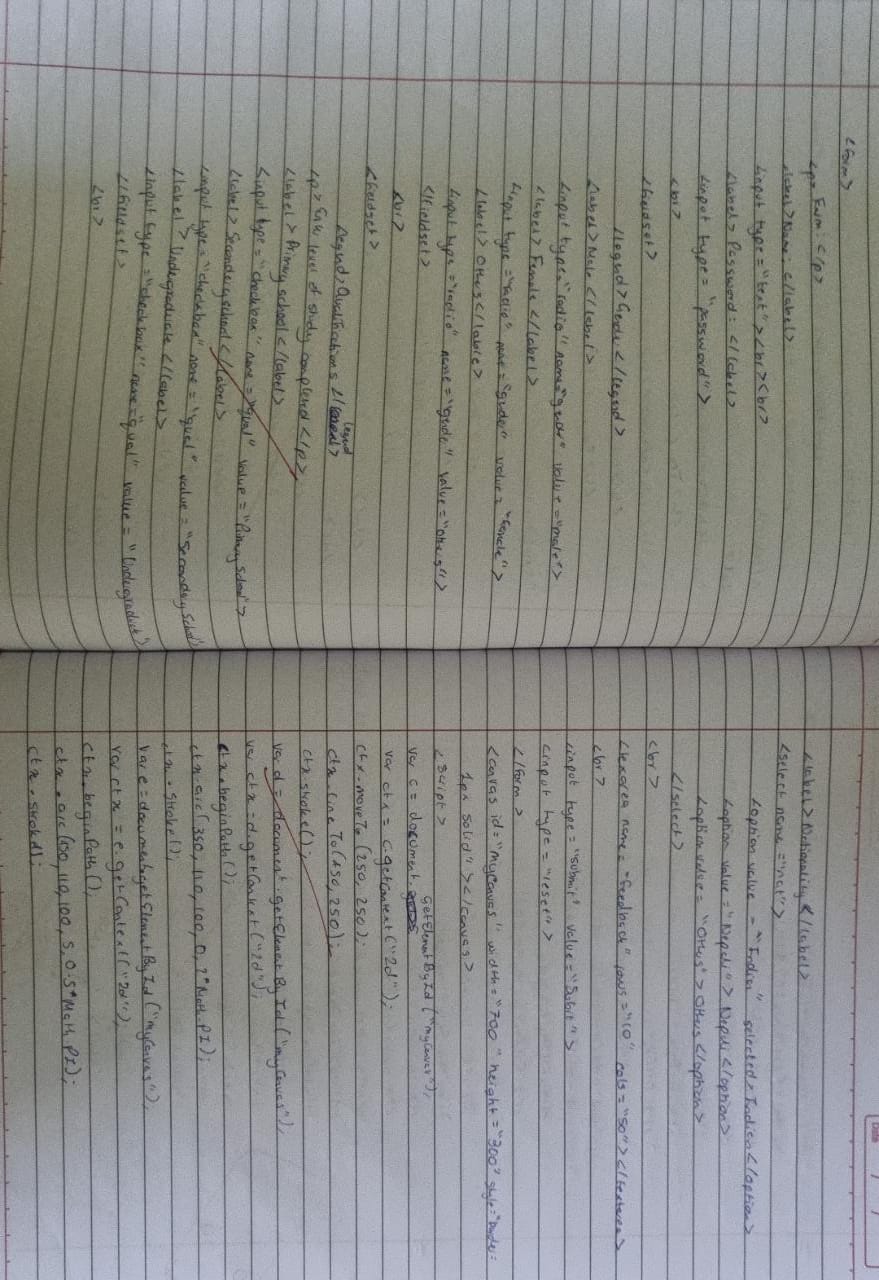 <form>
<p> Form: </p>
<label>Name: </label>
<input type = "text"><br><br>
<label> Password: </label>
<input type = "password">
<br>
<fieldset>
<legend> Gende: </legend>
<label> Male </label>
<input type = "radio" name="gender" value = "male">
<label> Female </label>
<input type = "radio" name = "gender" value = "female">
<label> Others </lable>
<input type = "radio" name = "gender" value = "others">
</fieldset>
<br>
<fieldset>
<legend> Qualifications </legend>
<p> Enter level of study completed </p>
<label> Primary school </label>
<input type = "checkbox" name = "qual" value = "Primary School">
<label> Secondary school </label>
<input type = "checkbox" name = "qual" value = "Secondary School">
<label> Undergraduate </label>
<input type = "checkbox" name = "qual" value = "Undergraduate">
</fieldset>
<br>
<label> Nationality </label>
<select name = "nat">
<option value = "Indian" selected> Indian </option>
<option value = "Nepali"> Nepali </option>
<option value = "Others"> Others </option>
</select>
<br>
<texarea name = "feedback" rows = "10" cols = "50"></textarea>
<br>
<input type = "submit" value = "Submit">
<input type = "reset">
</form>
<canvas id = "myCanvas" width = "700" height = "300" style = "border:
1px solid"></canvas>
<script>
var c = document.getElementById("myCanvas");
var ctx = c.getContext("2d");
ctx.moveTo (250, 250);
ctx.lineTo(450, 250);
ctx.stroke();
var d = document.getElementById("myCanvas");
var ctx = d.getContext("2d");
ctx.beginPath();
ctx.arc(350, 110, 100, 0, 2*Math.PI);
ctx.stroke();
var e = document.getElementById("myCanvas");
var ctx = e.getContext("2d");
ctx.beginPath();
ctx.arc(150, 110, 100, 5, 0.5*Math.PI);
ctx.stroke();
Date / /